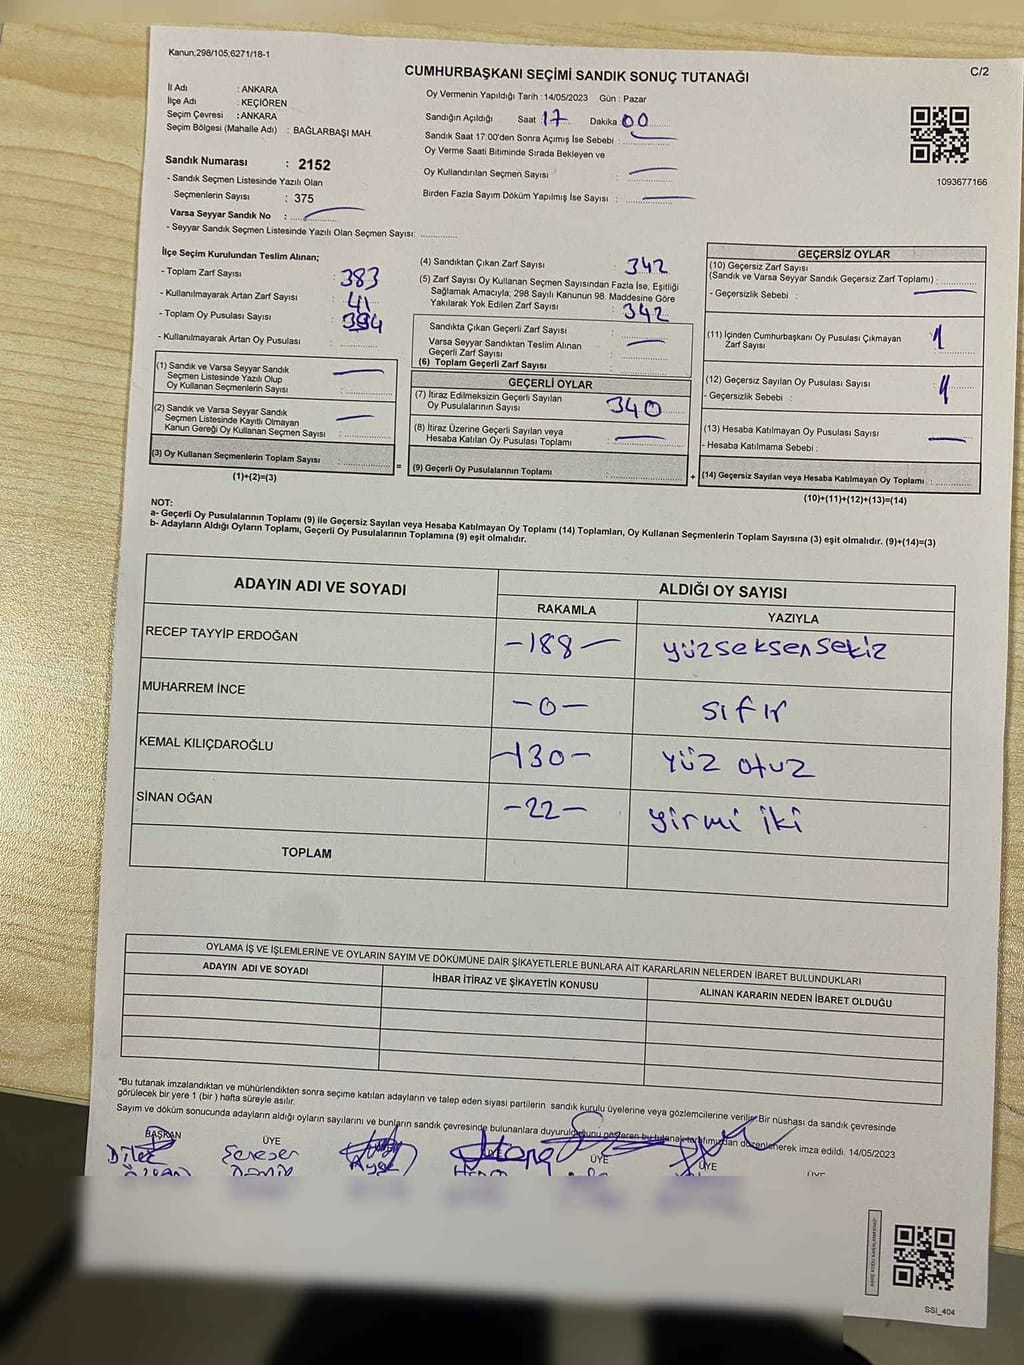 Kanun;298/105;6271/18-1
C/2
CUMHURBAŞKANI SEÇİMİ SANDIK SONUÇ TUTANAĞI
İl Adı : ANKARA
İlçe Adı : KEÇİÖREN
Seçim Çevresi : ANKARA
Seçim Bölgesi (Mahalle Adı) : BAĞLARBAŞI MAH.
Sandık Numarası : 2152
- Sandık Seçmen Listesinde Yazılı Olan
Seçmenlerin Sayısı : 375
Varsa Seyyar Sandık No :
- Seyyar Sandık Seçmen Listesinde Yazılı Olan Seçmen Sayısı:
Oy Vermenin Yapıldığı Tarih : 14/05/2023 Gün : Pazar
Sandığın Açıldığı Saat : 17 Dakika : 00
Sandık Saat 17:00'den Sonra Açımış İse Sebebi :
Oy Verme Saati Bitiminde Sırada Bekleyen ve
Oy Kullandırılan Seçmen Sayısı :
Birden Fazla Sayım Döküm Yapılmış İse Sayısı :
1093677166
İlçe Seçim Kurulundan Teslim Alınan;
- Toplam Zarf Sayısı : 383
- Kullanılmayarak Artan Zarf Sayısı : 41
- Toplam Oy Pusulası Sayısı :
- Kullanılmayarak Artan Oy Pusulası :
(1) Sandık ve Varsa Seyyar Sandık
Seçmen Listesinde Yazılı Olup
Oy Kullanan Seçmenlerin Sayısı :
(2) Sandık ve Varsa Seyyar Sandık
Seçmen Listesinde Kayıtlı Olmayan
Kanun Gereği Oy Kullanan Seçmen Sayısı :
(3) Oy Kullanan Seçmenlerin Toplam Sayısı :
(1)+(2)=(3)
=
(4) Sandıktan Çıkan Zarf Sayısı : 342
(5) Zarf Sayısı Oy Kullanan Seçmen Sayısından Fazla İse, Eşitliği
Sağlamak Amacıyla, 298 Sayılı Kanunun 98. Maddesine Göre
Yakılarak Yok Edilen Zarf Sayısı : 342
Sandıkta Çıkan Geçerli Zarf Sayısı :
Varsa Seyyar Sandıktan Teslim Alınan
Geçerli Zarf Sayısı :
(6) Toplam Geçerli Zarf Sayısı :
GEÇERLİ OYLAR
(7) İtiraz Edilmeksizin Geçerli Sayılan
Oy Pusulalarının Sayısı : 340
(8) İtiraz Üzerine Geçerli Sayılan veya
Hesaba Katılan Oy Pusulası Toplamı :
(9) Geçerli Oy Pusulalarının Toplamı :
+
GEÇERSİZ OYLAR
(10) Geçersiz Zarf Sayısı
(Sandık ve Varsa Seyyar Sandık Geçersiz Zarf Toplamı) :
- Geçersizlik Sebebi :
(11) İçinden Cumhurbaşkanı Oy Pusulası Çıkmayan
Zarf Sayısı : 1
(12) Geçersiz Sayılan Oy Pusulası Sayısı : 1
- Geçersizlik Sebebi :
(13) Hesaba Katılmayan Oy Pusulası Sayısı :
- Hesaba Katılmama Sebebi :
(14) Geçersiz Sayılan veya Hesaba Katılmayan Oy Toplamı :
(10)+(11)+(12)+(13)=(14)
NOT:
a- Geçerli Oy Pusulalarının Toplamı (9) ile Geçersiz Sayılan veya Hesaba Katılmayan Oy Toplamı (14) Toplamları, Oy Kullanan Seçmenlerin Toplam Sayısına (3) eşit olmalıdır. (9)+(14)=(3)
b- Adayların Aldığı Oyların Toplamı, Geçerli Oy Pusulalarının Toplamına (9) eşit olmalıdır.
ADAYIN ADI VE SOYADI ALDIĞI OY SAYISI
RAKAMLA YAZIYLA
RECEP TAYYİP ERDOĞAN -188- yüzseksensekiz
MUHARREM İNCE -0- sıfır
KEMAL KILIÇDAROĞLU -130- yüz otuz
SİNAN OĞAN -22- yirmi iki
TOPLAM
OYLAMA İŞ VE İŞLEMLERİNE VE OYLARIN SAYIM VE DÖKÜMÜNE DAİR ŞİKAYETLERLE BUNLARA AİT KARARLARIN NELERDEN İBARET BULUNDUKLARI
ADAYIN ADI VE SOYADI İHBAR İTİRAZ VE ŞİKAYETİN KONUSU ALINAN KARARIN NEDEN İBARET OLDUĞU
*Bu tutanak imzalandıktan ve mühürlendikten sonra seçime katılan adayların ve talep eden siyasi partilerin sandık kurulu üyelerine veya gözlemcilerine verilir. Bir nüshası da sandık çevresinde
görülecek bir yere 1 (bir ) hafta süreyle asılır.
Sayım ve döküm sonucunda adayların aldığı oyların sayılarını ve bunların sandık çevresinde bulunanlara duyurulduğunu gösteren bu tutanak tarafımızdan düzenlenerek imza edildi. 14/05/2023
BAŞKAN ÜYE ÜYE ÜYE ÜYE
SSI_404